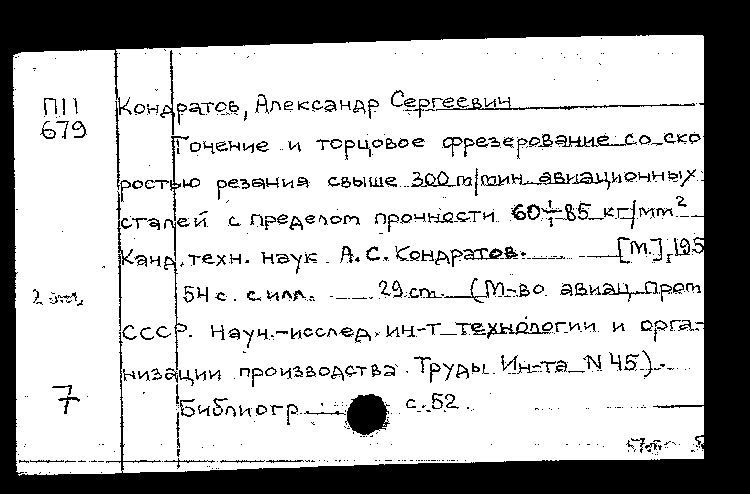 П11
679
Кондратов, Александр Сергеевич
Точение и торцовое фрезерование со ско
ростью резания свыше 300 m/мин. авиационных
сталей с пределом прочности 60÷85 кг/мм²
Канд. техн. наук А.С. Кондратов. [М.], 195
54 с. с илл. 29 cm. (М-во авиац. пром
СССР. Науч.-исслед. ин-т технологии и орга-
низации производства. Труды Ин-та N 45).
7
Библиогр.: с. 52.